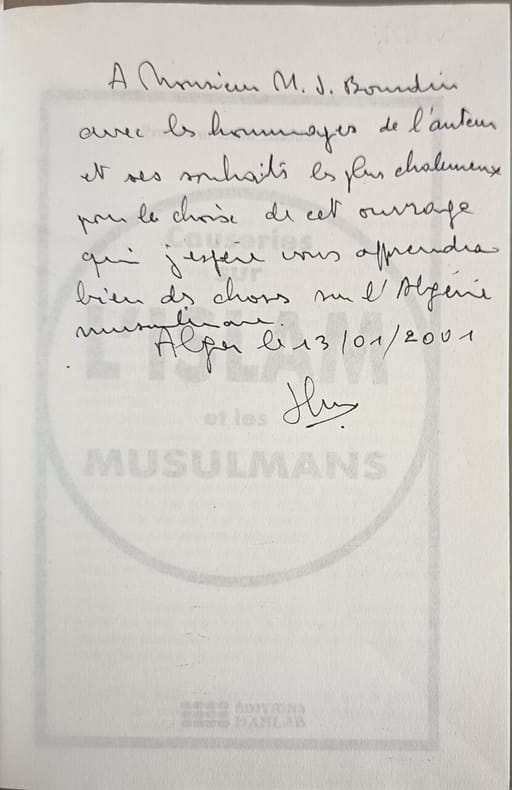 A Monsieur M. J. Bourdin
avec les hommages de l'auteur
et ses souhaits les plus chaleureux
pour le choix de cet ouvrage
qui j'espère vous apprendra
bien des choses sur l'Algérie
musulmane.
Alger le 13/01/2001
Causeries
sur
L'ISLAM
et les
MUSULMANS
ÉDITIONS
DAHLAB